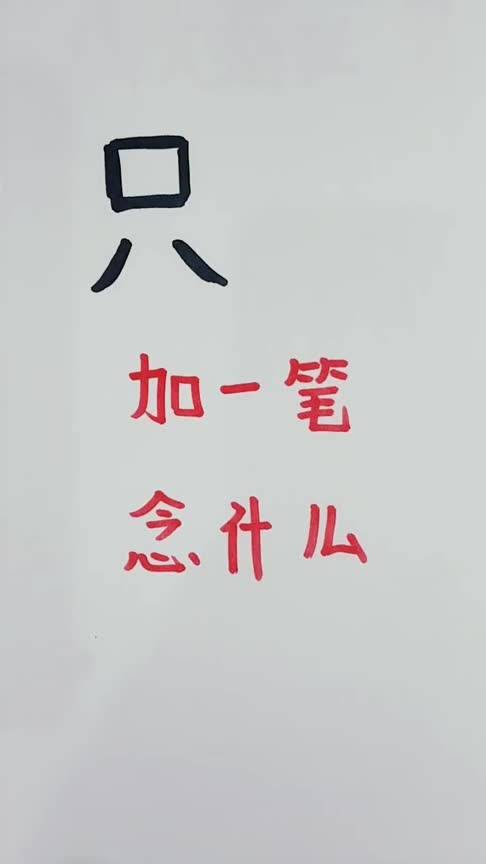 只
加一笔
念什么